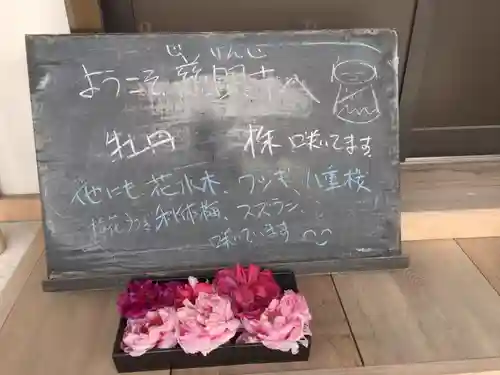 じゅんりんじ
ようこそ、慈恩寺へ
牡丹 株 咲いてます
他にも 花水木、ツツジ、八重桜
利休梅、スズラン、
咲いています